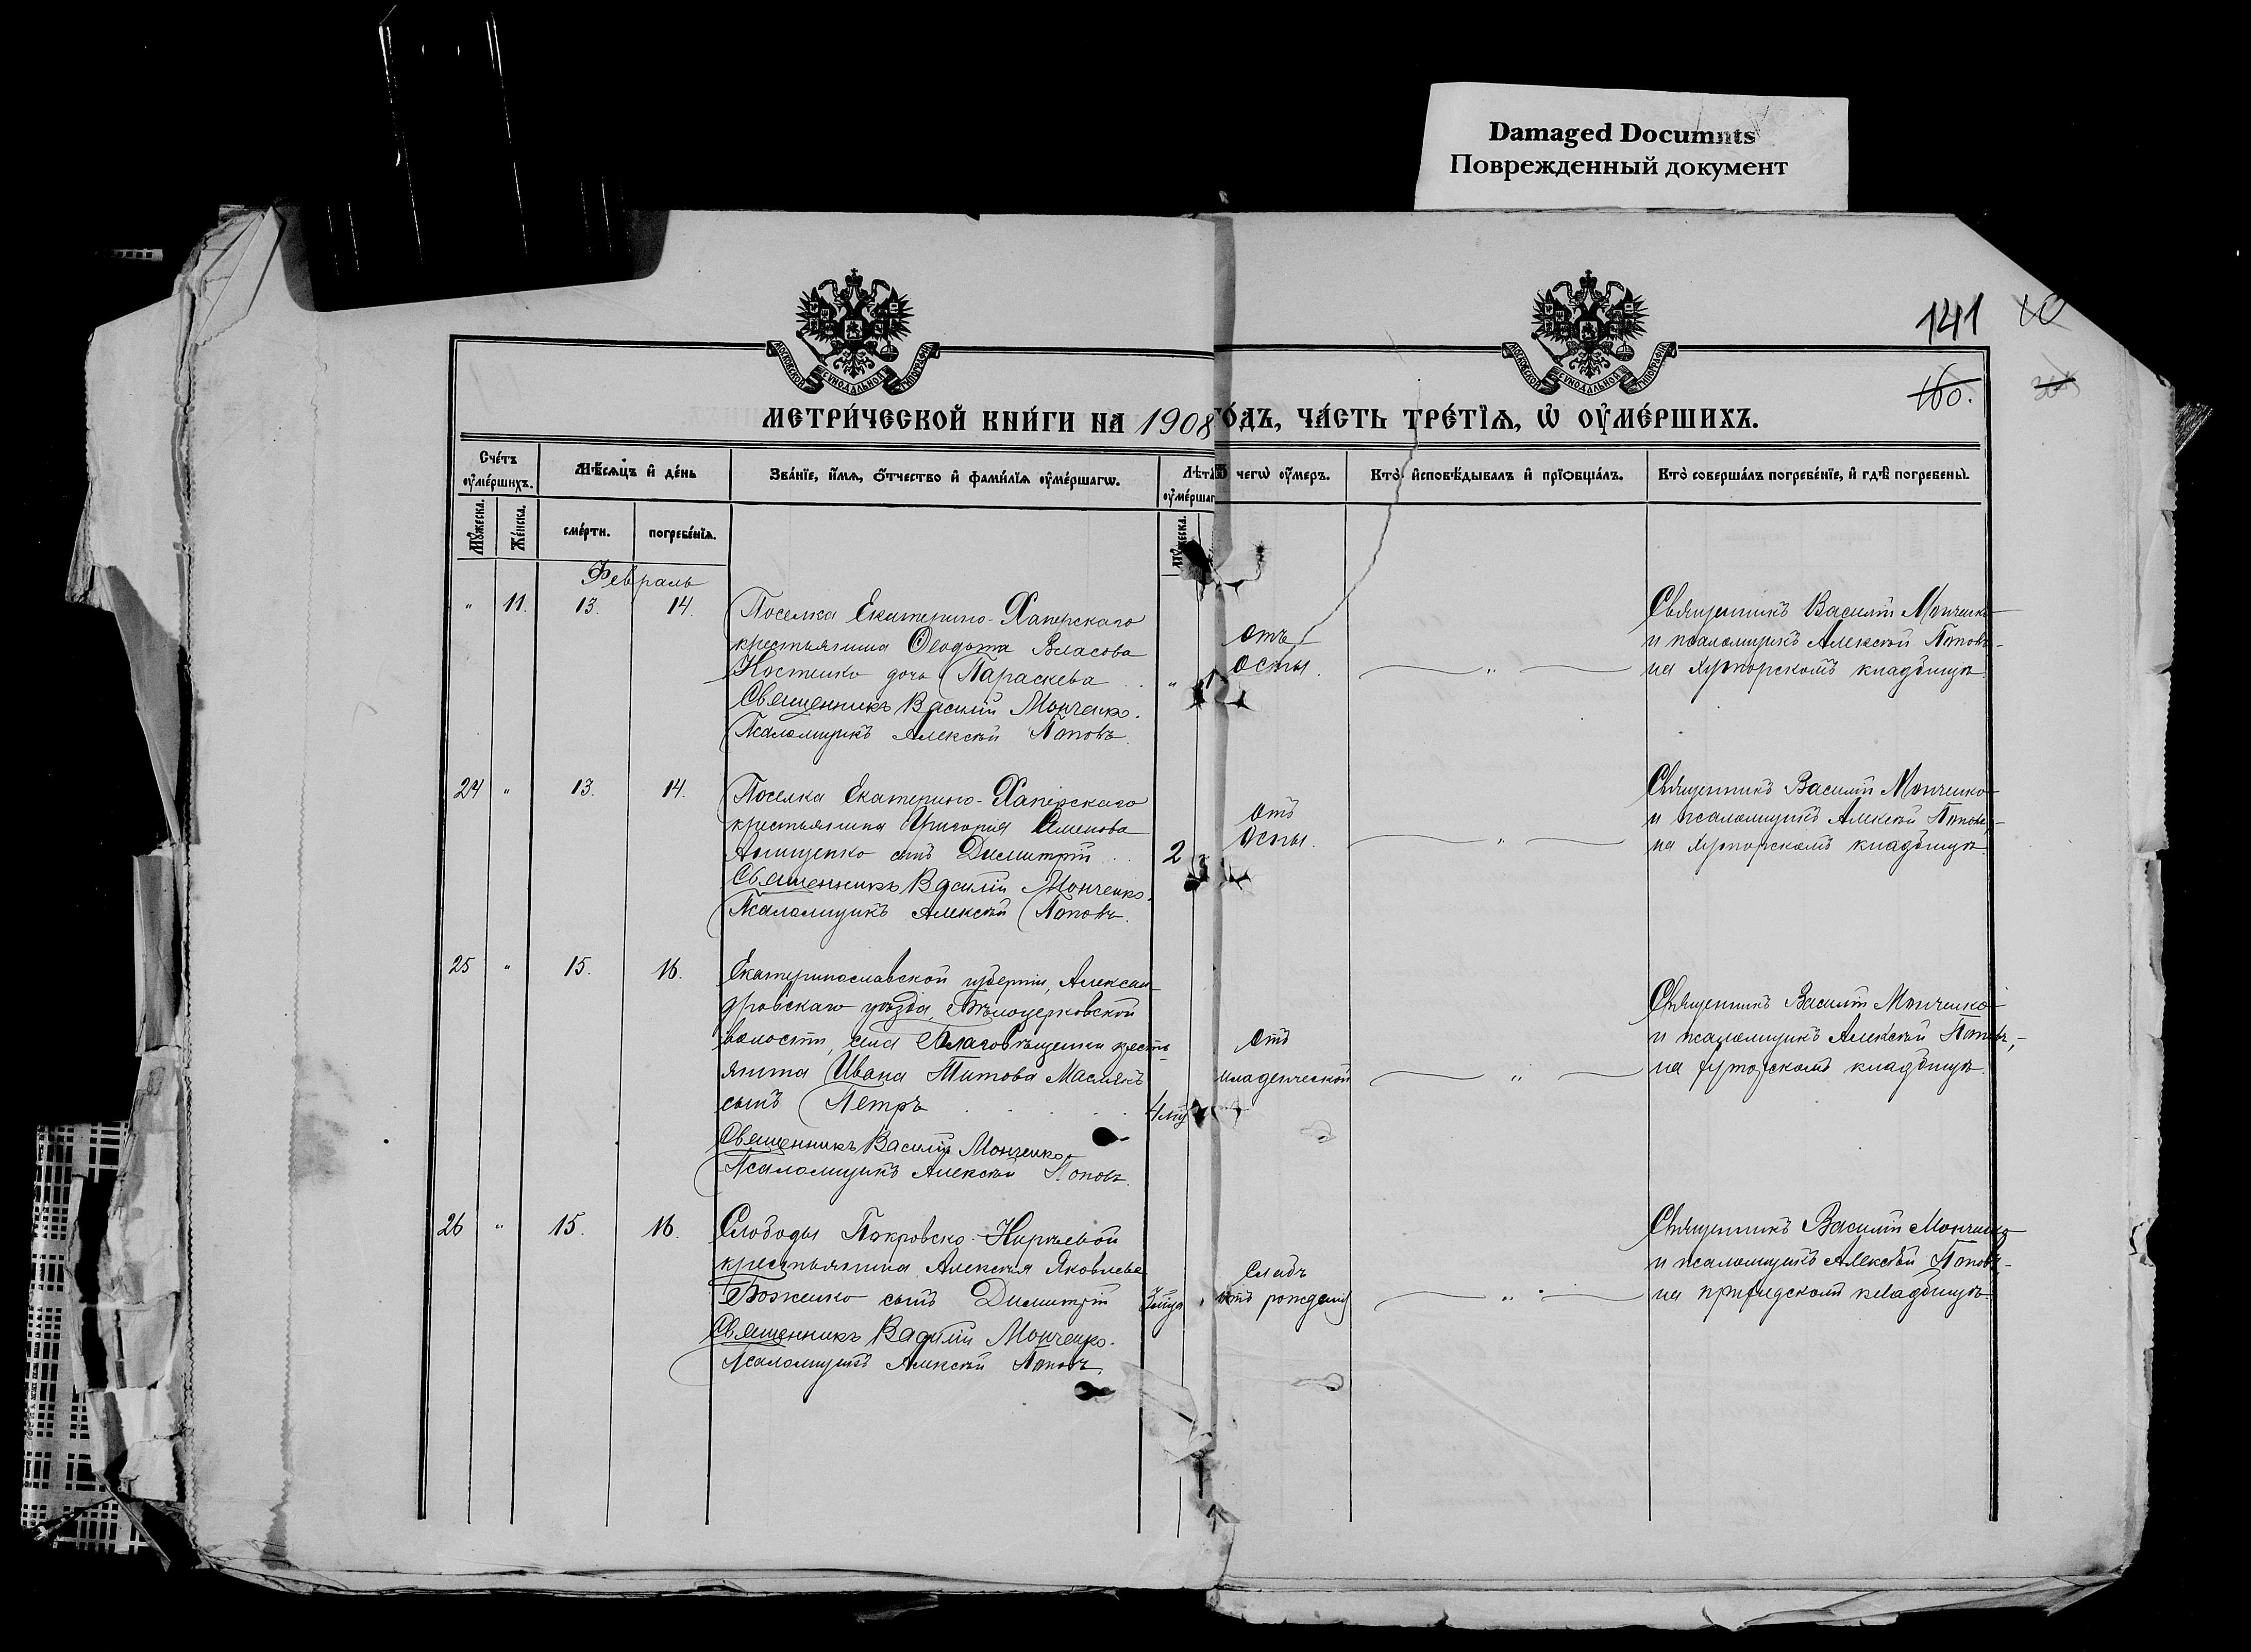 Damaged Documnts
Поврежденный документ
141
160.
МОСКОВСКОЙ СУНОДАЛЬНОЙ ТИПОГРАФІИ
МОСКОВСКОЙ СУНОДАЛЬНОЙ ТИПОГРАФІИ
МЕТРИ́ЧЕСКОЙ КНИ́ГИ НА 1908 ГО́ДЪ, ЧА́СТЬ ТРЕ́ТЇѦ, Ѡ ОУ҆МЕ́РШИХЪ.
Сче́тъ оу҆ме́ршихъ.
Мѣ́сѧцъ и҆ де́нь
Зва́нїе, и҆́мѧ, ѻ҆́тчество и҆ фами́лїѧ оу҆ме́ршагѡ.
Лѣт
оу҆ме́ршаг
Ѿ чегѡ̀ оу҆́меръ.
Кто̀ и҆сповѣ́дывалъ и҆ прїѻбща́лъ.
Кто̀ соверша́лъ погребе́нїе, и҆ гдѣ̀ погребены̀.
Мꙋ́жеска.
Же́нска.
сме́рти.
погребе́нїѧ.
Мꙋ́жеска.
Февраль
" 11. 13. 14.
Поселка Екатерино-Хаперскаго
крестьянина Ѳеодота Власова
Костенко дочь Параскева
Священникъ Василій Монченко.
Псаломщикъ Алексѣй Поповъ.
" 1
отъ
оспы.
"
Священникъ Василій Монченко
и псаломщикъ Алексѣй Поповъ
на хуторскомъ кладбищѣ.
24 " 13. 14.
Поселка Екатерино-Хаперскаго
крестьянина Григорія Семенова
сынъ Димитрій
Священникъ Василій Монченко.
Псаломщикъ Алексѣй Поповъ.
2
отъ
оспы.
"
Священникъ Василій Монченко
и псаломщикъ Алексѣй Поповъ,
на хуторскомъ кладбищѣ.
25 " 15. 16.
Екатеринославской губерніи, Алексан-
дровскаго уѣзда, Бѣлоцерковской
волости, села Благовѣщенки кресть-
янина Ивана Титова Маслякъ
сынъ Петръ
Священникъ Василій Монченко.
Псаломщикъ Алексѣй Поповъ.
4
отъ
младенческой
"
Священникъ Василій Монченко
и псаломщикъ Алексѣй Поповъ,
на хуторскомъ кладбищѣ.
26 " 15. 16.
Слободы Покровско-Киреевой
крестьянина Алексѣя Яковлева
Боженко сынъ Димитрій
Священникъ Василій Монченко.
Псаломщикъ Алексѣй Поповъ.
слабъ
отъ рожденія
"
Священникъ Василій Монченко
и псаломщикъ Алексѣй Поповъ
на приходскомъ кладбищѣ.